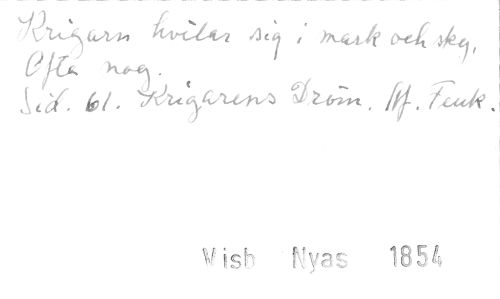 Krigarn hvilar sig i mark och sky,
Ofta nog.
Sid. 61. Krigarens Dröm. Af. Fenk.
Visb Nyas 1854